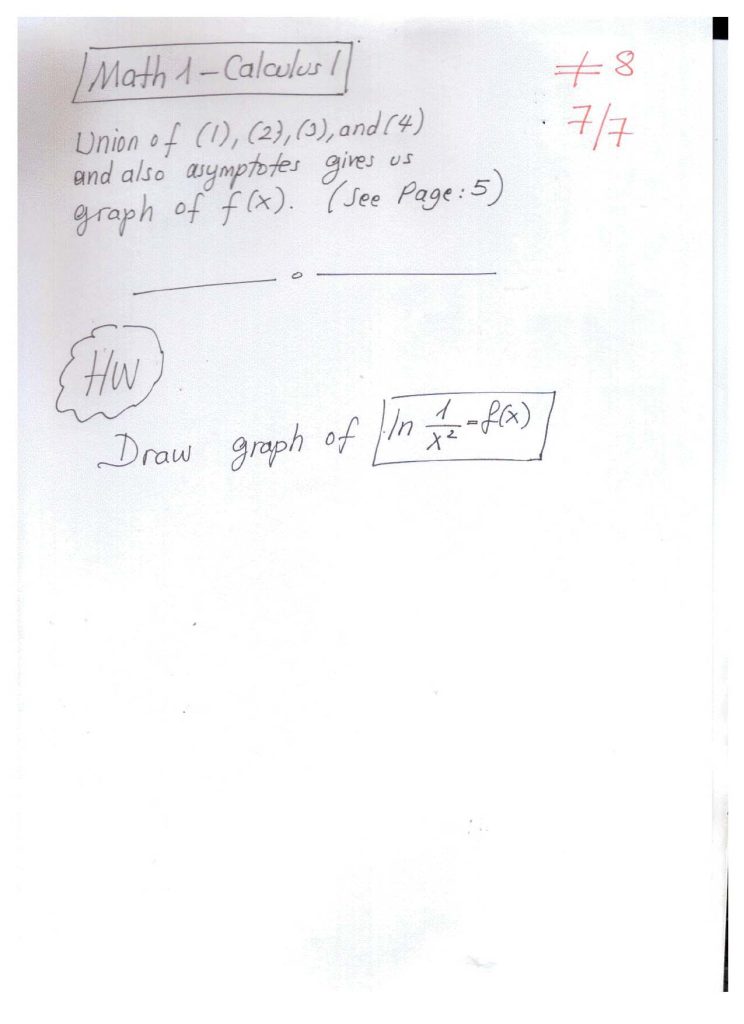 Math 1 - Calculus 1
≠ 8
7/7
Union of (1), (2), (3), and (4)
and also asymptotes gives us
graph of f(x). (See Page: 5)
HW
Draw graph of ln 1/x² = f(x)